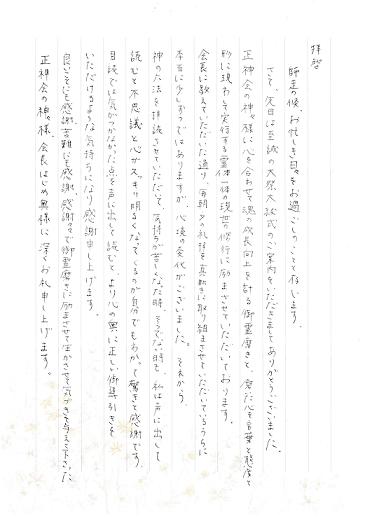 拝啓
師走の候、お忙しき日々をお過ごしのことと存じます。
さて、先日は至誠の大祭大祓式のご案内をいただきましてありがとうございました。
正神会の神々様に心を合わせて魂の成長向上を計る御霊磨きと、磨いた心を言葉と態度と
形に現わして実行する霊体一体の現世の修行に励まさせていただいております。
会長に教えていただいた通り、毎朝夕の礼拝を真剣に取り組まさせていただいているうちに
本当に少しずつではありますが、心境の変化がございました。それから、
神の大法を拝読させていただいて、気持ちが苦しくなった時、そうでない時も、私は声に出して
読むと不思議と心がスッキリ明るくなっているのが自分でもわかって驚きと感謝です。
目読では気がつかなかった点を声に出して読むと、より心の奥に正しい御導引きを
いただけるような気持ちになり感謝申し上げます。
良いことにも感謝、苦難にも感謝、感謝々々で御霊磨きに励まさせて生かさせて気づきを与えて下さった
正神会の神々様、会長はじめ奥様に深くお礼申し上げます。